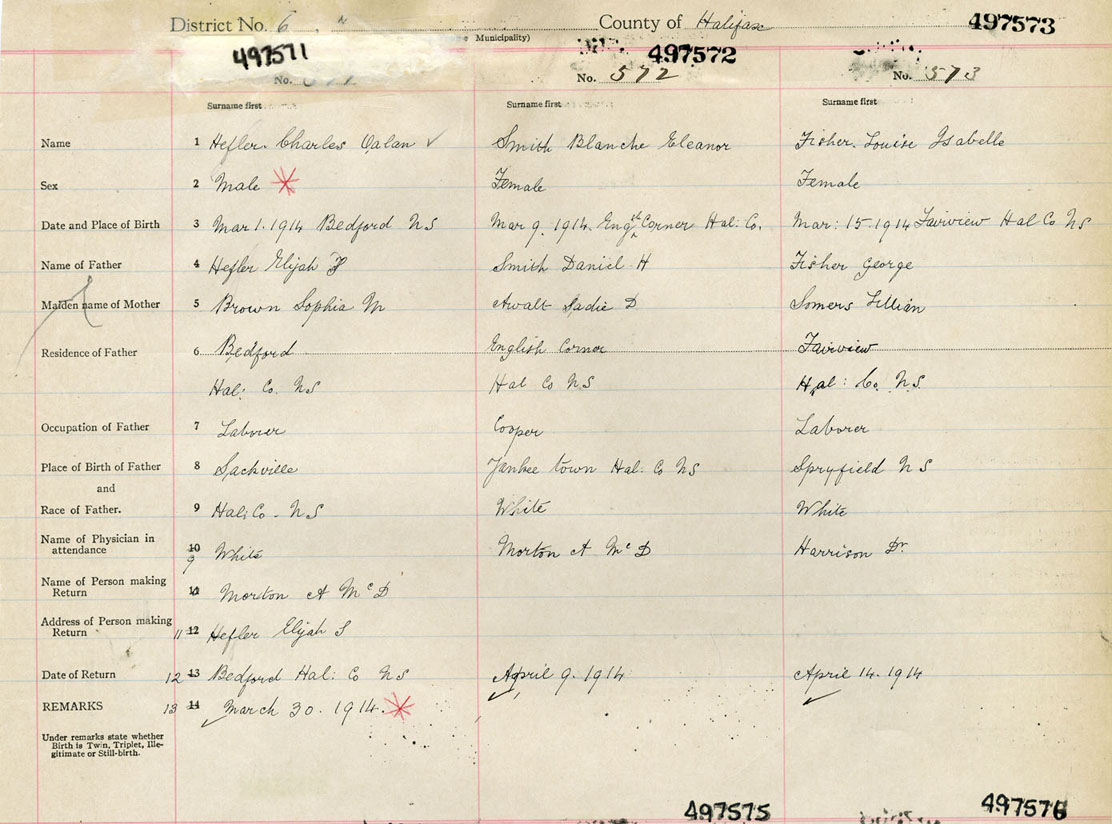 District No. 6 County of Halifax 497573
Municipality)
497571 497572
No. No. 572 No. 573
Surname first Surname first Surname first
Name 1 Hefler Charles Oalan ✓ Smith Blanche Eleanor Fisher. Louise Isabelle
Sex 2 Male Female Female
Date and Place of Birth 3 Mar 1. 1914 Bedford NS Mar 9. 1914. Engsh Corner Hal: Co. Mar: 15. 1914 Fairview Hal Co NS
Name of Father 4 Hefler Elijah Smith Daniel H Fisher George
Maiden name of Mother 5 Brown Sophia M Awalt Sadie D Somers Lillian
Residence of Father 6 Bedford English Corner Fairview
Hal: Co. NS Hal Co NS Hal: Co. N.S.
Occupation of Father 7 Laborer Cooper Laborer
Place of Birth of Father 8 Sackville Yankee town Hal: Co NS Spryfield NS
and
Race of Father. 9 Hal: Co. NS White White
Name of Physician in
attendance 10 9 White Morton A McD Harrison Dr.
Name of Person making
Return Morton A McD
Address of Person making
Return 11 12 Hefler Elijah S
Date of Return 12 13 Bedford Hal: Co NS April 9. 1914 April 14. 1914
REMARKS 13 14 March 30. 1914.
Under remarks state whether
Birth is Twin, Triplet, Ille-
gitimate or Still-birth.
497575 497576